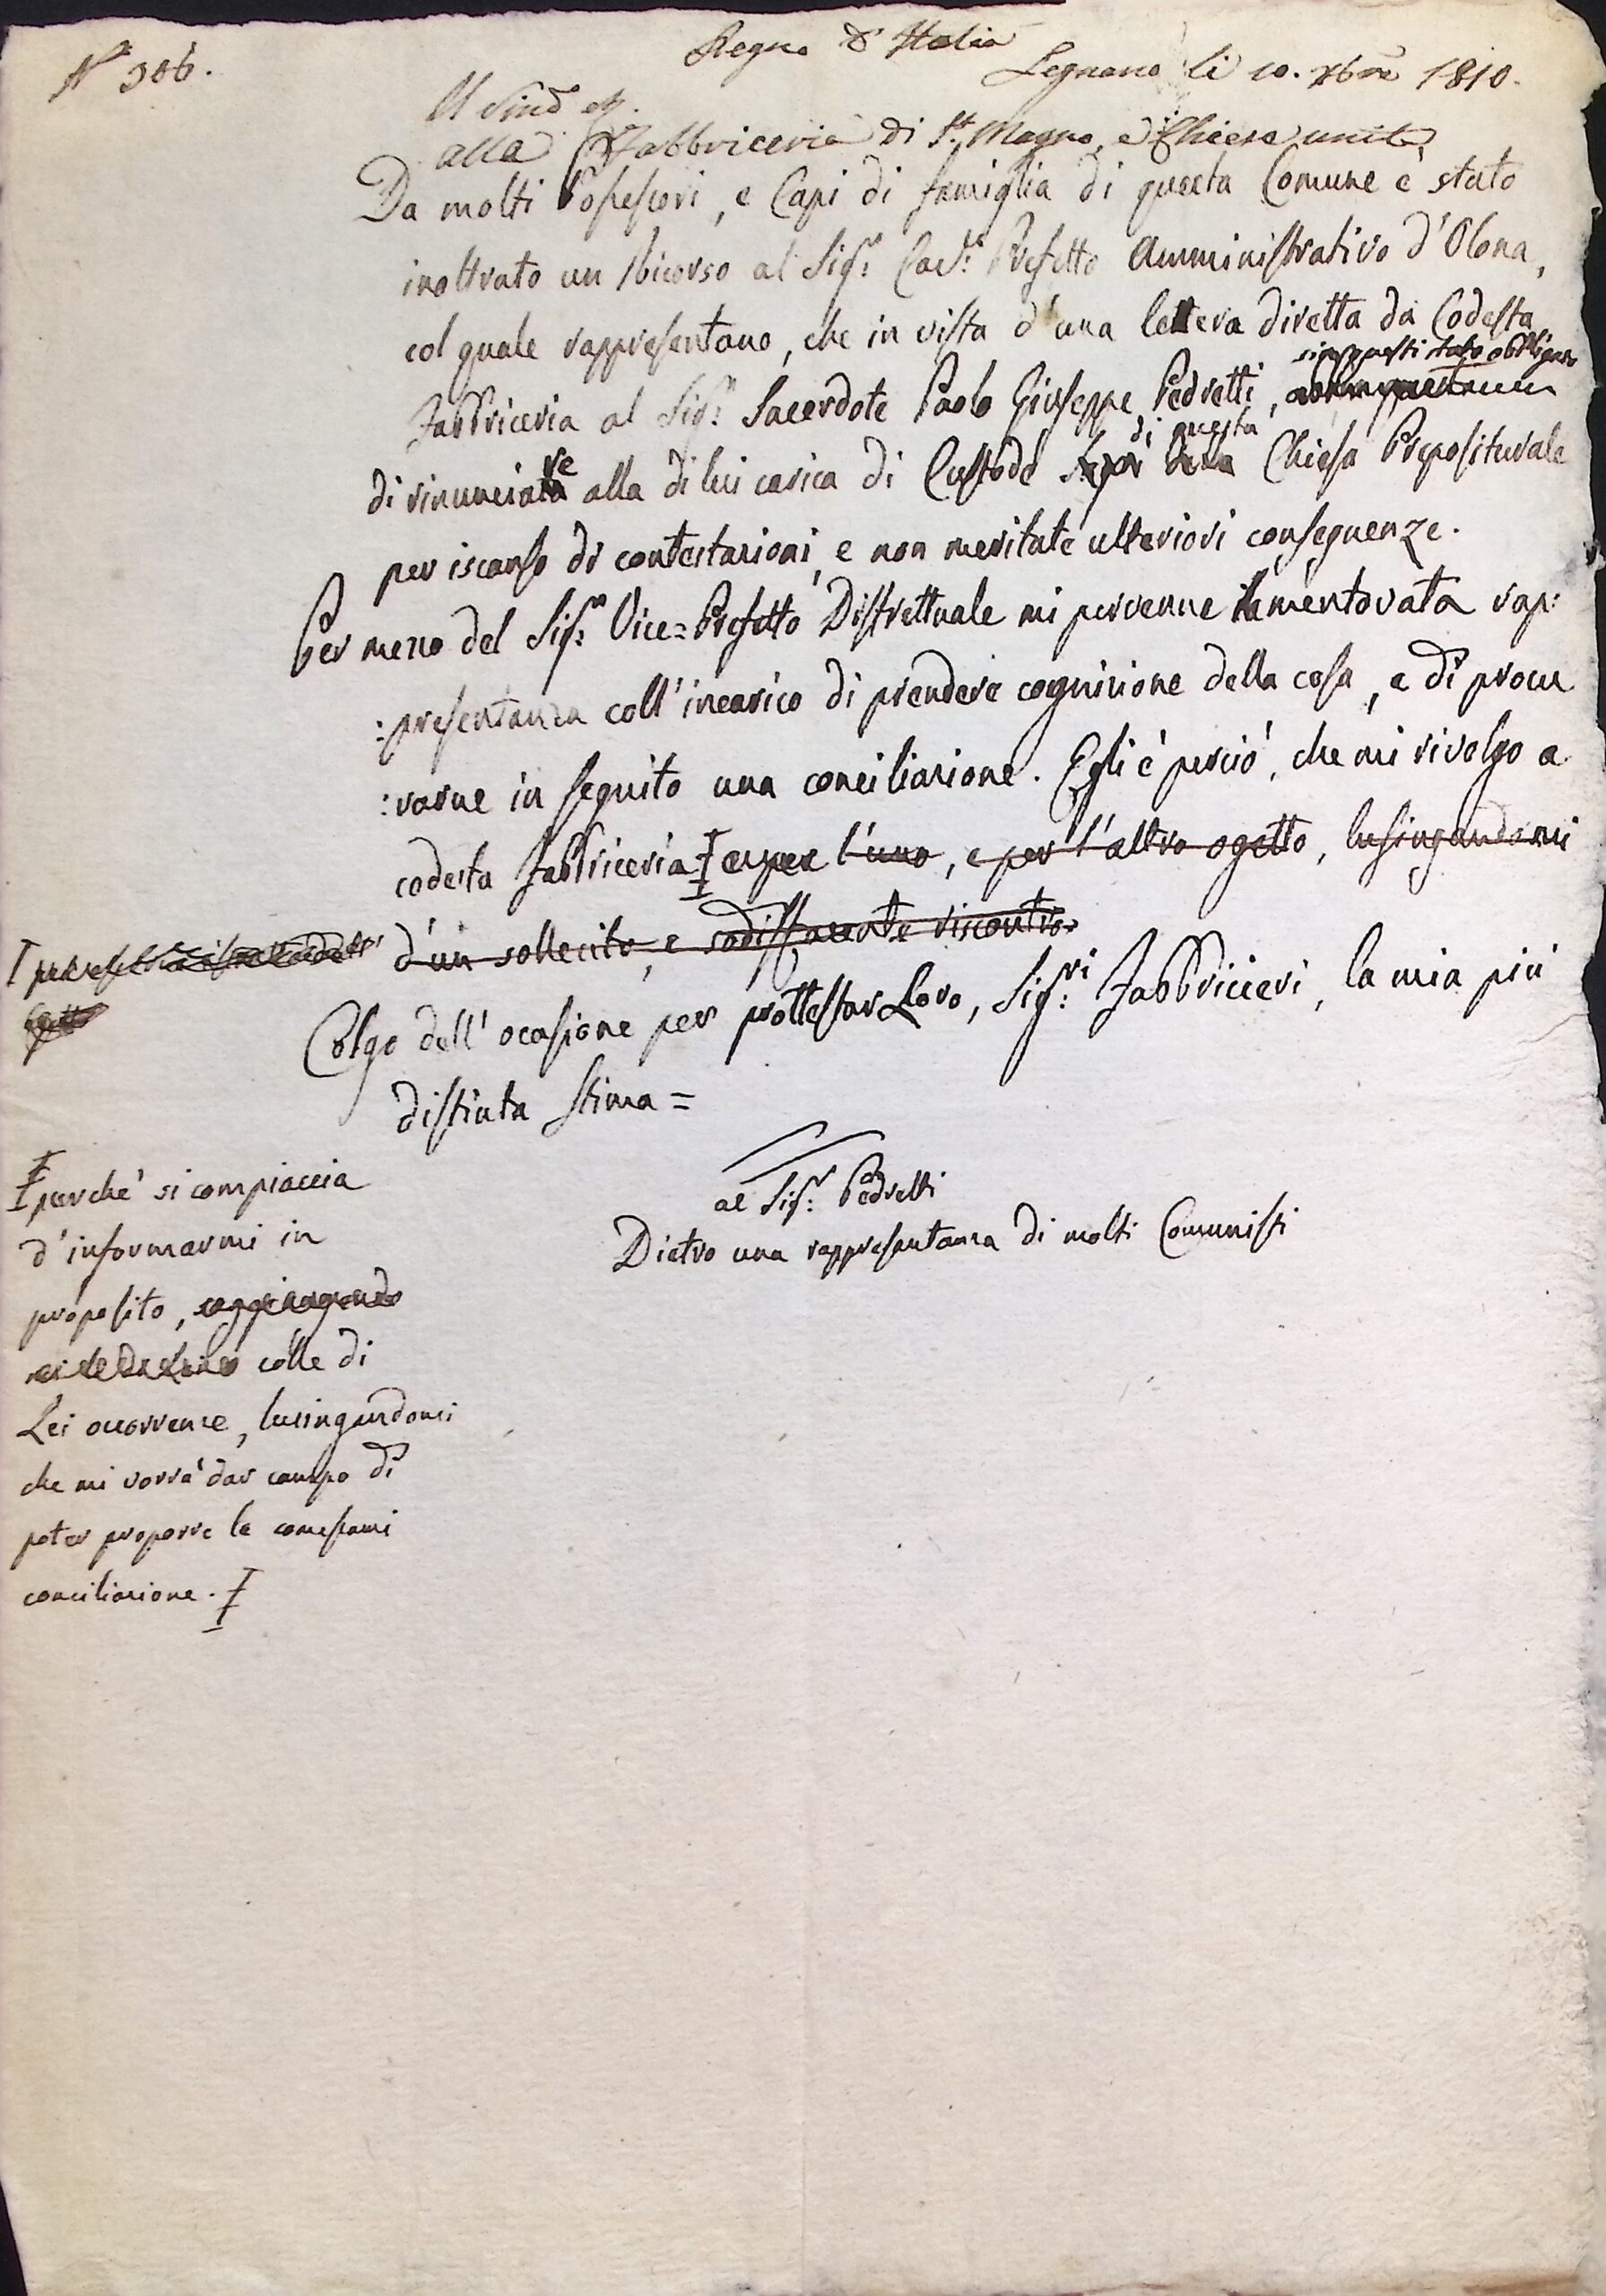 Regno d'Italia
N° 306.
Legnano li 10. Xbre 1810.
Il Sind.o
alla Fabbriceria di S.t Magno, e Chiese unite
Da molti Possessori, e Capi di famiglia di questa Comune è stato
inoltrato un Ricorso al Sig.r Cav.e Prefetto Amministrativo d'Olona,
col quale rappresentano, che in vista d'una lettera diretta da Codesta
siasi questi stato obbligato
Fabbriceria al Sig.r Sacerdote Paolo Giuseppe Pedretti,
di questa
di rinunciare alla di lui carica di Custode Chiesa Prepositurale
per iscanso di contestazioni, e non meritate ulteriori conseguenze.
Per mezzo del Sig.r Vice=Prefetto Distrettuale mi pervenne la mentovata rap:
:presentanza coll'incarico di prendere cognizione della cosa, e di procu
:rarne in seguito una conciliazione. Egli è perciò, che mi rivolgo a
codesta Fabbriceria l'uno, e per l'altro ogetto, lusingandomi
d'un sollecito, e sodisfacente riscontro.
Colgo dell'ocasione per prottestar Loro, Sig.ri Fabbricieri, la mia più
distinta stima =
perchè si compiaccia
d'informarmi in
proposito, soggiungendo
colle di
Lei occorrenze, lusingandomi
che mi vorrà dar campo di
poter proporre la
conciliazione.
al Sig.r Pedretti
Dietro una rappresentanza di molti Comunisti